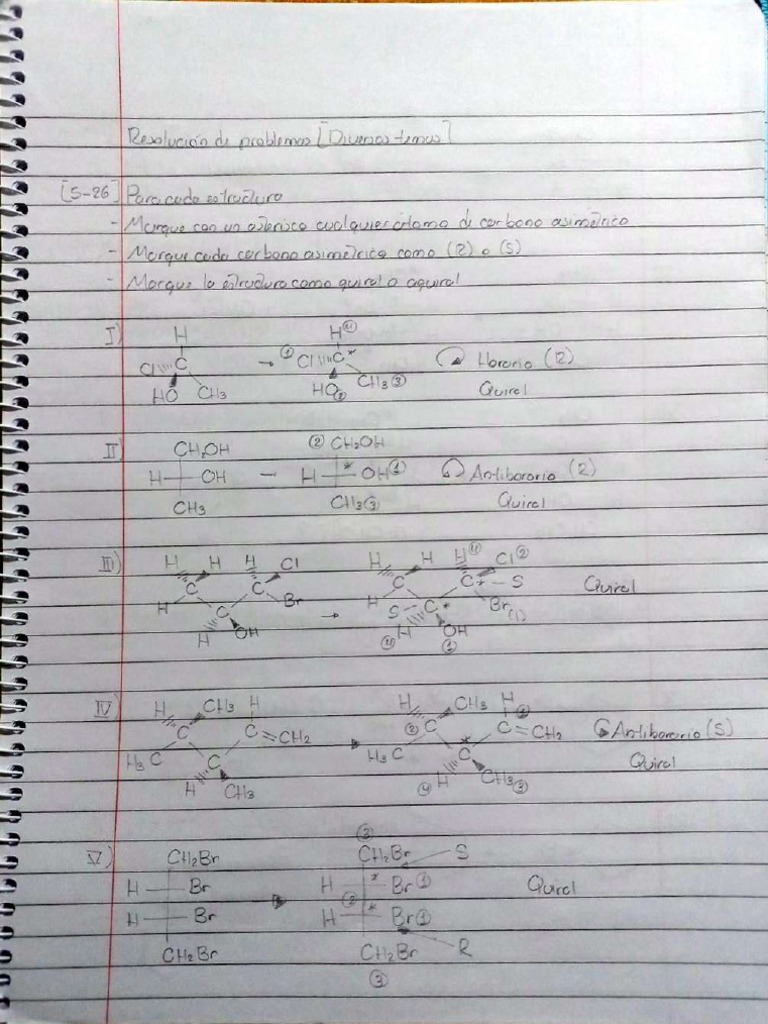 Resolución de problemas [Diversos temas]
[5-26] Para cada estructura
- Marque con un asterisco cualquier átomo de carbono asimétrico
- Marque cada carbono asimétrico como (R) o (S)
- Marque la estructura como quiral o aquiral
I) H H④
Cl C → ① Cl C* Horario (R)
HO CH₃ HO② CH₃③ Quiral
II) CH₂OH ② CH₂OH
H OH – H * OH① Antihorario (R)
CH₃ CH₃③ Quiral
III) H H H Cl H H H④ Cl②
C C C C* – S Quiral
H C Br → H S – C* Br(1)
H OH H OH
④ ①
IV) H CH₃ H H CH₃ H
C C=CH₂ ② C C=CH₂ ① Antihorario (S)
H₃C C H₃C C* Quiral
H CH₃ ④ H CH₃③
V) CH₂Br ③ CH₂Br S
H Br H * Br① Quiral
②
H Br H * Br①
CH₂Br CH₂Br R
③